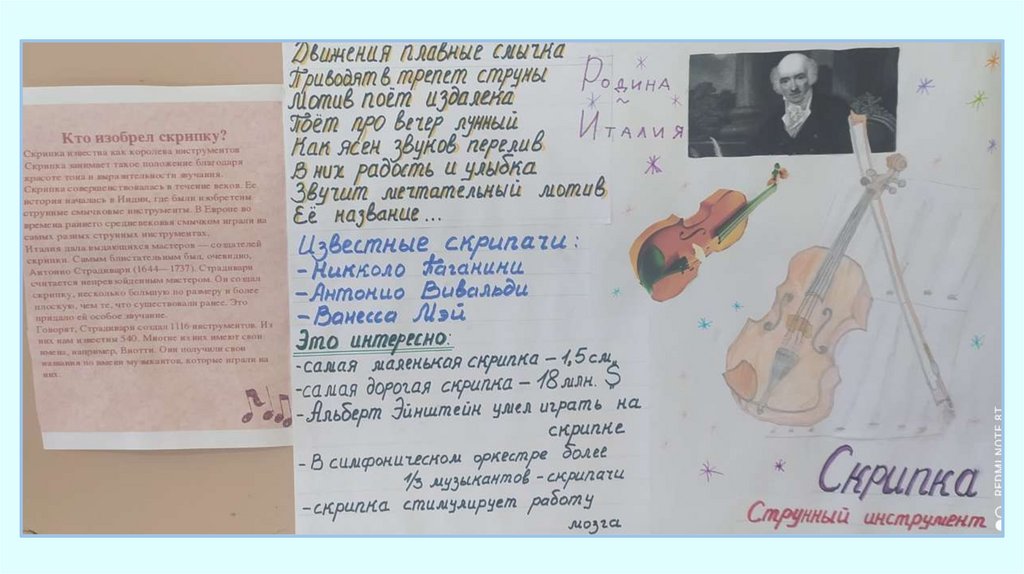 Кто изобрел скрипку?
Скрипка известна как королева инструментов
Скрипка занимает такое положение благодаря
красоте тона и выразительности звучания.
Скрипка совершенствовалась в течение веков. Ее
история началась в Индии, где были изобретены
струнные смычковые инструменты. В Европе во
времена раннего средневековья смычком играли на
самых разных струнных инструментах.
Италия дала выдающихся мастеров — создателей
скрипки. Самым блистательным был, очевидно,
Антонио Страдивари (1644— 1737). Страдивари
считается непревзойденным мастером. Он создал
скрипку, несколько большую по размеру и более
плоскую, чем те, что существовали ранее. Это
придало ей особое звучание.
Говорят, Страдивари создал 1116 инструментов. Из
них нам известны 540. Многие из них имеют свои
имена, например, Виотти. Они получили свои
названия по имени музыкантов, которые играли на
них.
Движения плавные смычка
Приводят в трепет струны
Мотив поёт издалека
Поёт про вечер лунный
Как ясен звуков перелив
В них радость и улыбка
Звучит мечтательный мотив
Её название...
Известные скрипачи:
-Никколо Паганини
-Антонио Вивальди
-Ванесса Мэй
Это интересно:
-самая маленькая скрипка – 1,5 см
-самая дорогая скрипка – 18 млн. $
-Альберт Эйнштейн умел играть на
скрипке
-В симфоническом оркестре более
1/3 музыкантов-скрипачи
-скрипка стимулирует работу
мозга
Родина
~
Италия
Скрипка
Струнный инструмент
REDMI NOTE 8T